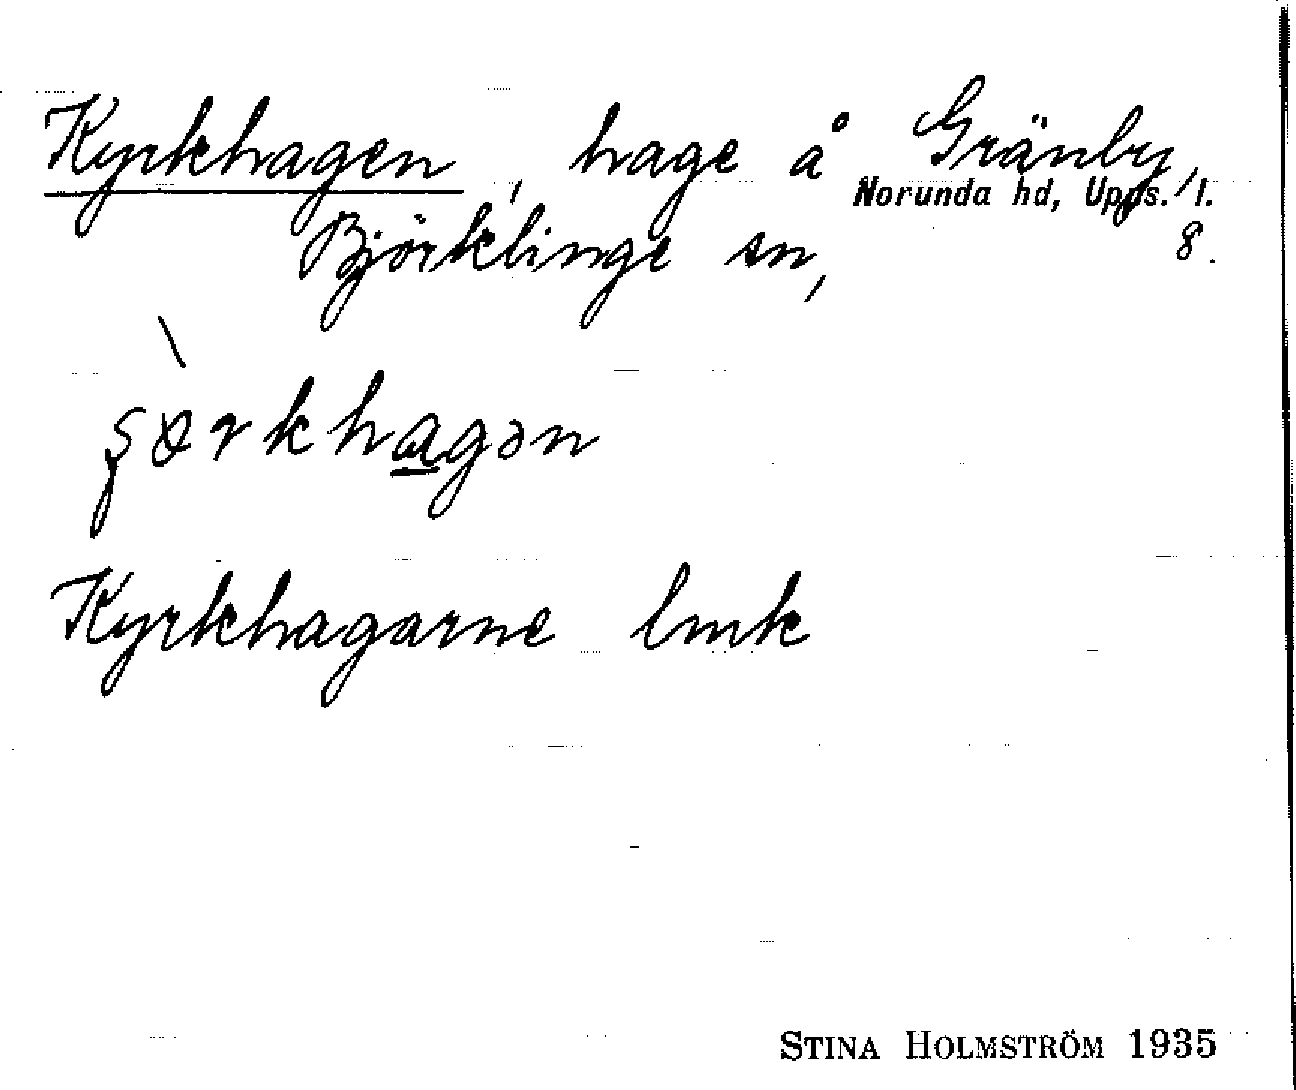 Kyrkhagen, hage å Gränby,
Norunda hd, Upps. l.
Björklinge sn, 8.
ʂɵ̀rkhagən
Kyrkhagarne lmk
STINA HOLMSTRÖM 1935